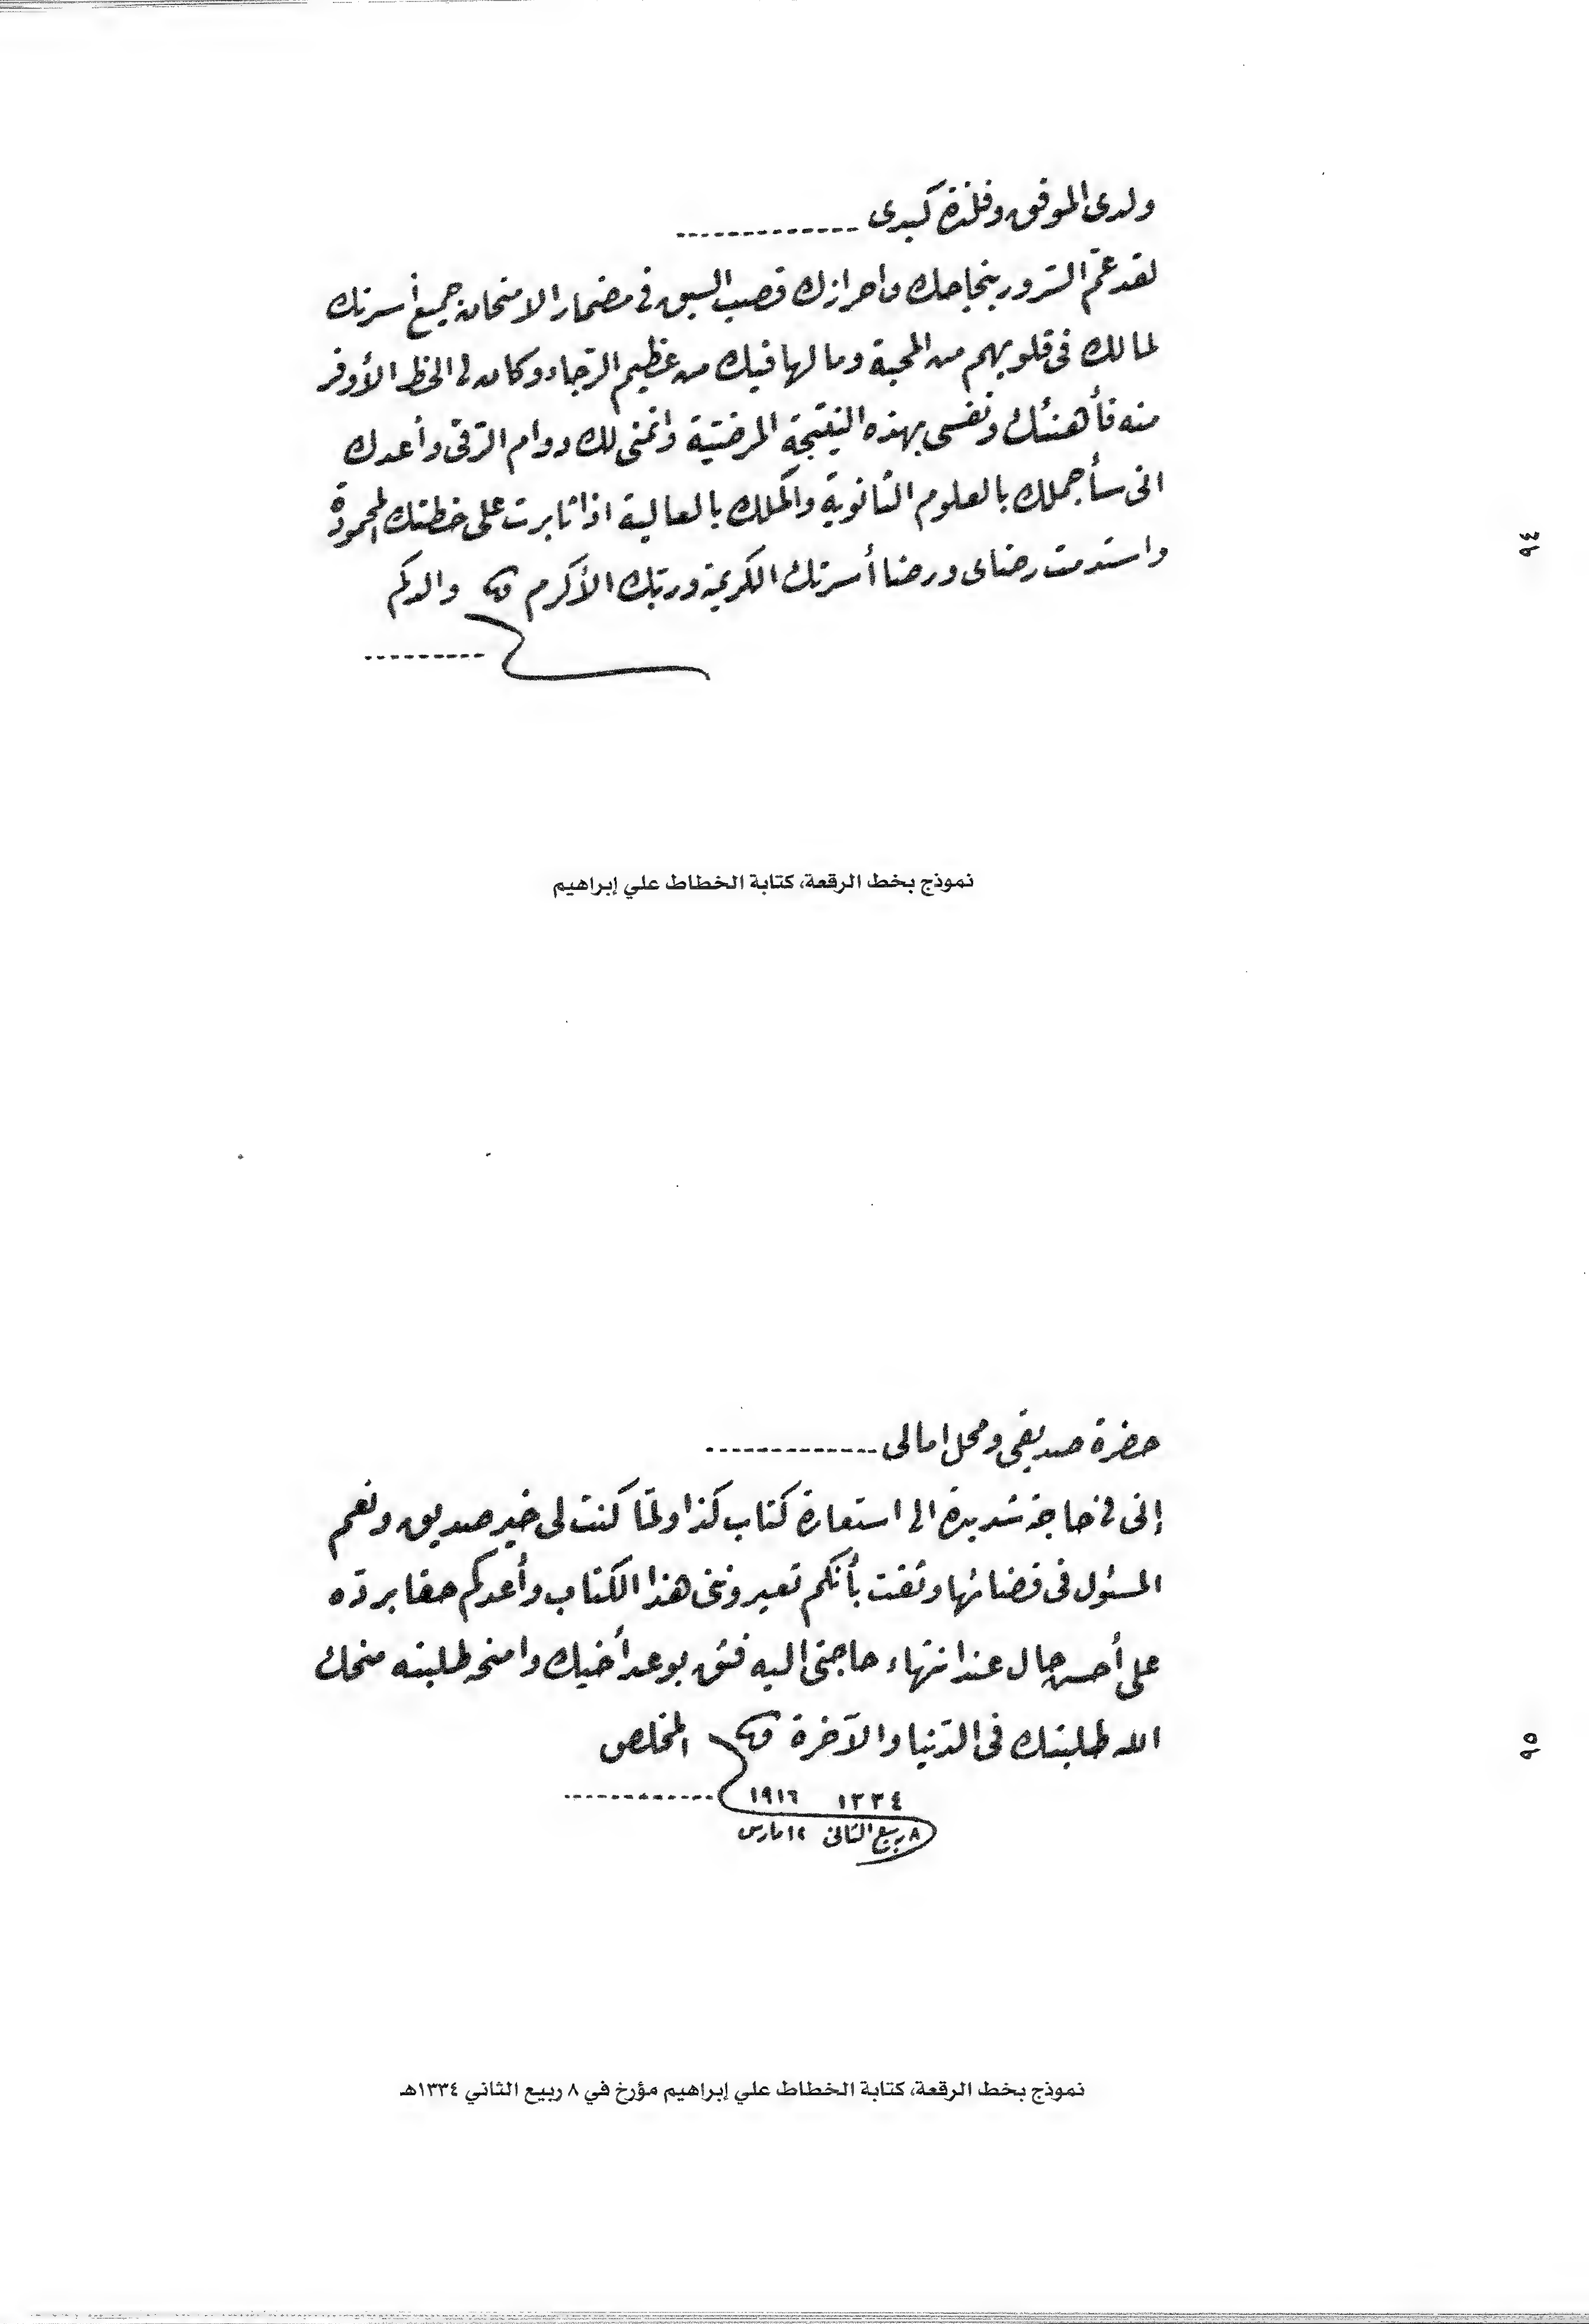 ولدى الموفق وفلذة كبدى .............
لقد عمّ السّرور بنجاحك واحرازك قصب السبق فى مضمار الامتحان جميع أسرتك
لمالك فى قلوبهم من المحبة وما لها فيك من عظيم الرّجاء وكان لى الحظ الأوفر
منه فأهنئك ونفسى بهذه النتيجة المرضيّة واتمنى لك دوام الترقّى وأعدك
انى سأجملك بالعلوم الثانوية واكملك بالعالية اذا ثابرت على خطتك المحمودة
واستدمت رضاى ورضا أسرتك الكريمة وربّك الأكرم والدكم
..........
نموذج بخط الرقعة، كتابة الخطاط علي إبراهيم
٩٤
حضرة صديقى ومحل امالى .............
إنى فى حاجة شديدة الى استعارة كتاب كذا ولمّا كنت لى خير صديق ونعم
المسئول فى قضائها وثقت بأنكم تعيروننى هذا الكتاب وأعدكم حقا بردّه
على أحسن حال عند انتهاء حاجتى اليه فثق بوعد أخيك وامنحه طلبته منحك
الله طلبتك فى الدّنيا والآخرة المخلص
١٣٣٤ ١٩١٦ ............
٨ ربيع الثانى ١٢ مارس
نموذج بخط الرقعة، كتابة الخطاط علي إبراهيم مؤرخ في ٨ ربيع الثاني ١٣٣٤هـ
٩٥